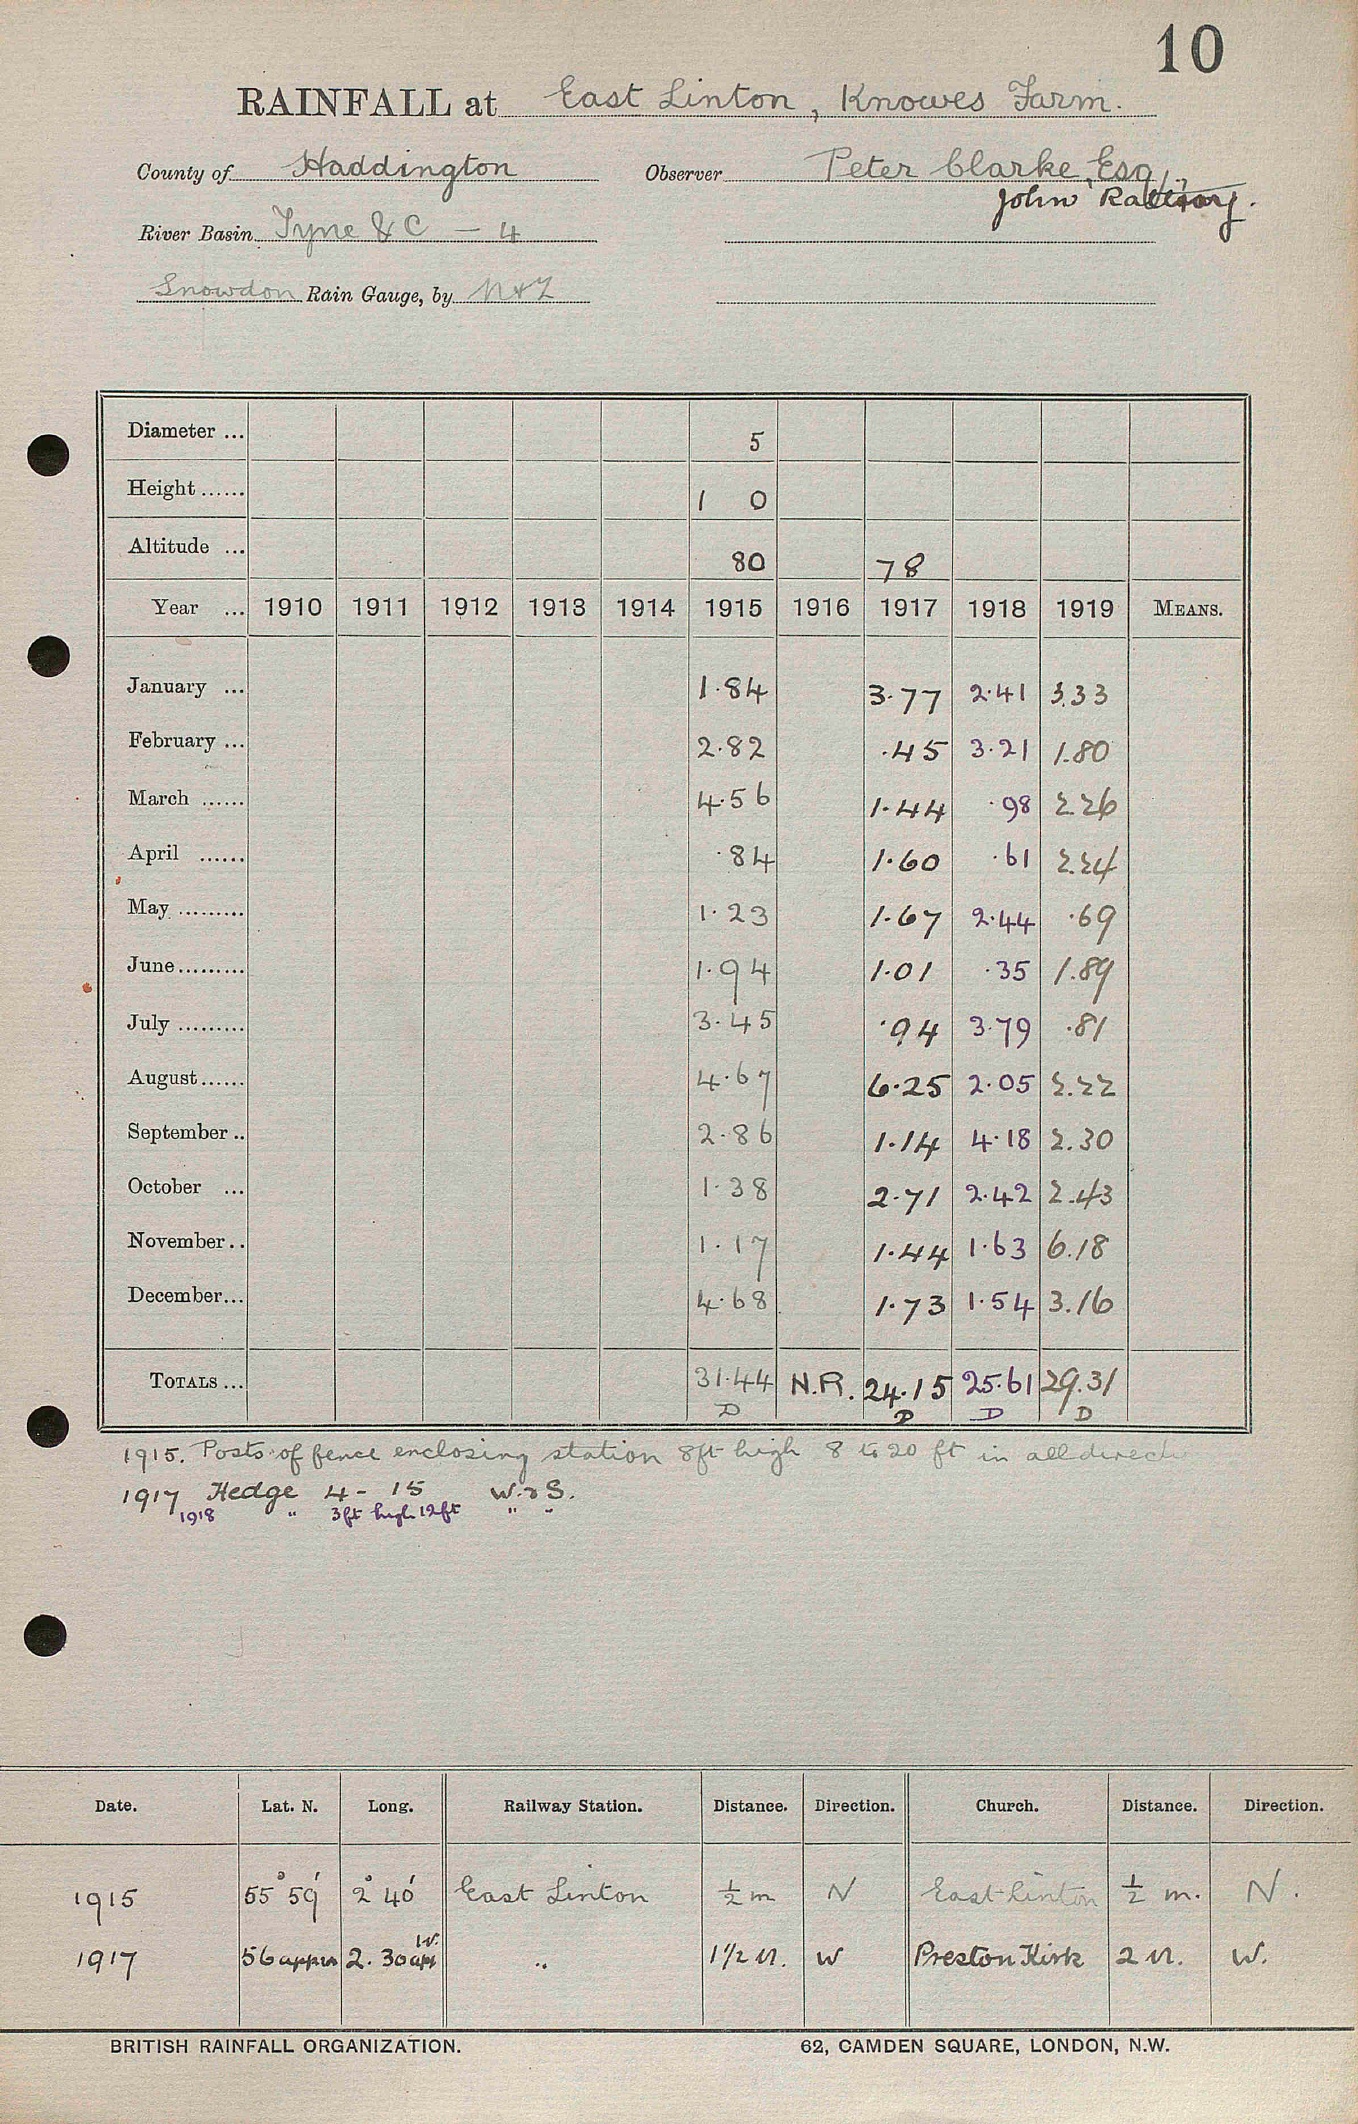 10
RAINFALL at East Linton, Knowes Farm.
County of Haddington Observer Peter Clarke, Esq
John
River Basin Tyne & C — 4
Snowdon Rain Gauge, by N & Z
Diameter ... 5
Height ...... 1 0
Altitude ... 80 78
Year ... 1910 1911 1912 1913 1914 1915 1916 1917 1918 1919 MEANS.
January ... 1.84 3.77 2.41 3.33
February ... 2.82 .45 3.21 1.80
March ...... 4.56 1.44 .98 2.26
April ...... .84 1.60 .61 2.24
May ......... 1.23 1.67 2.44 .69
June ......... 1.94 1.01 .35 1.89
July ......... 3.45 .94 3.79 .81
August ...... 4.67 6.25 2.05 2.22
September .. 2.86 1.14 4.18 2.30
October ... 1.38 2.71 2.42 2.43
November .. 1.17 1.44 1.63 6.18
December ... 4.68 1.73 1.54 3.16
TOTALS ... 31.44 N.R. 24.15 25.61 29.31
D D D D
1915. Posts of fence enclosing station 8ft high 8 to 20 ft in all direct
1917 Hedge 4 - 15 W. & S.
1918 " 3ft high 12ft " "
Date. Lat. N. Long. Railway Station. Distance. Direction. Church. Distance. Direction.
1915 55° 59' 2° 40' East Linton ½ m N East Linton ½ m. N.
1917 56 appx 2.30 W. " 1½ M. W Preston Kirk 2 M. W.
BRITISH RAINFALL ORGANIZATION. 62, CAMDEN SQUARE, LONDON, N.W.